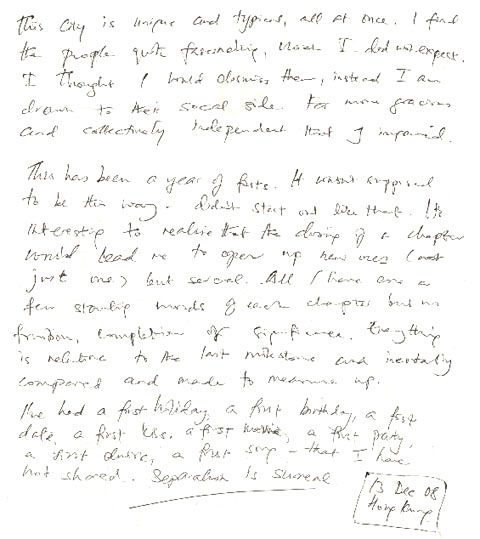 This city is unique and typical, all at once. I find
the people quite fascinating, which I did not expect.
I thought I would dismiss them, instead I am
drawn to their social side. Far more gracious
and collectively independent that I imagined.
This has been a year of firsts. It wasn't supposed
to be this way. Didn't start out like that. It's
interesting to realise that the closing of a chapter
would lead me to open up new ones (not
just one) but several. All I have are a
few starting words of each chapter but no
completion of significance. Everything
is relative to the last milestone and inevitably
compared and made to measure up.
I've had a first holiday, a first birthday, a first
date, a first kiss, a first movie, a first party,
a first dance, a first song - that I have
not shared. Separation is surreal
13 Dec 08
Hong Kong